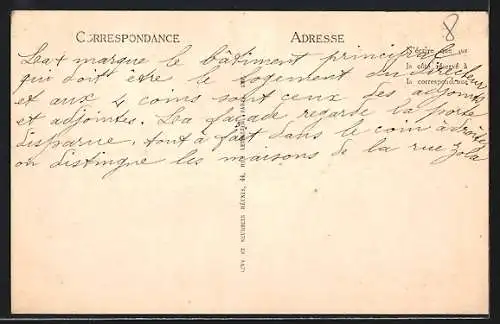 8
CORRESPONDANCE
ADRESSE
N'écrire que sur
le côté réservé à
la correspondance
La + marque le bâtiment principal
qui doit être le logement du directeur
et aux 4 coins sont ceux des adjoints
et adjointes. La façade regarde la porte
disparue. tout à fait dans le coin à droite
on distingue les maisons de la rue Zola
LÉVY ET NEURDEIN RÉUNIS, 44,